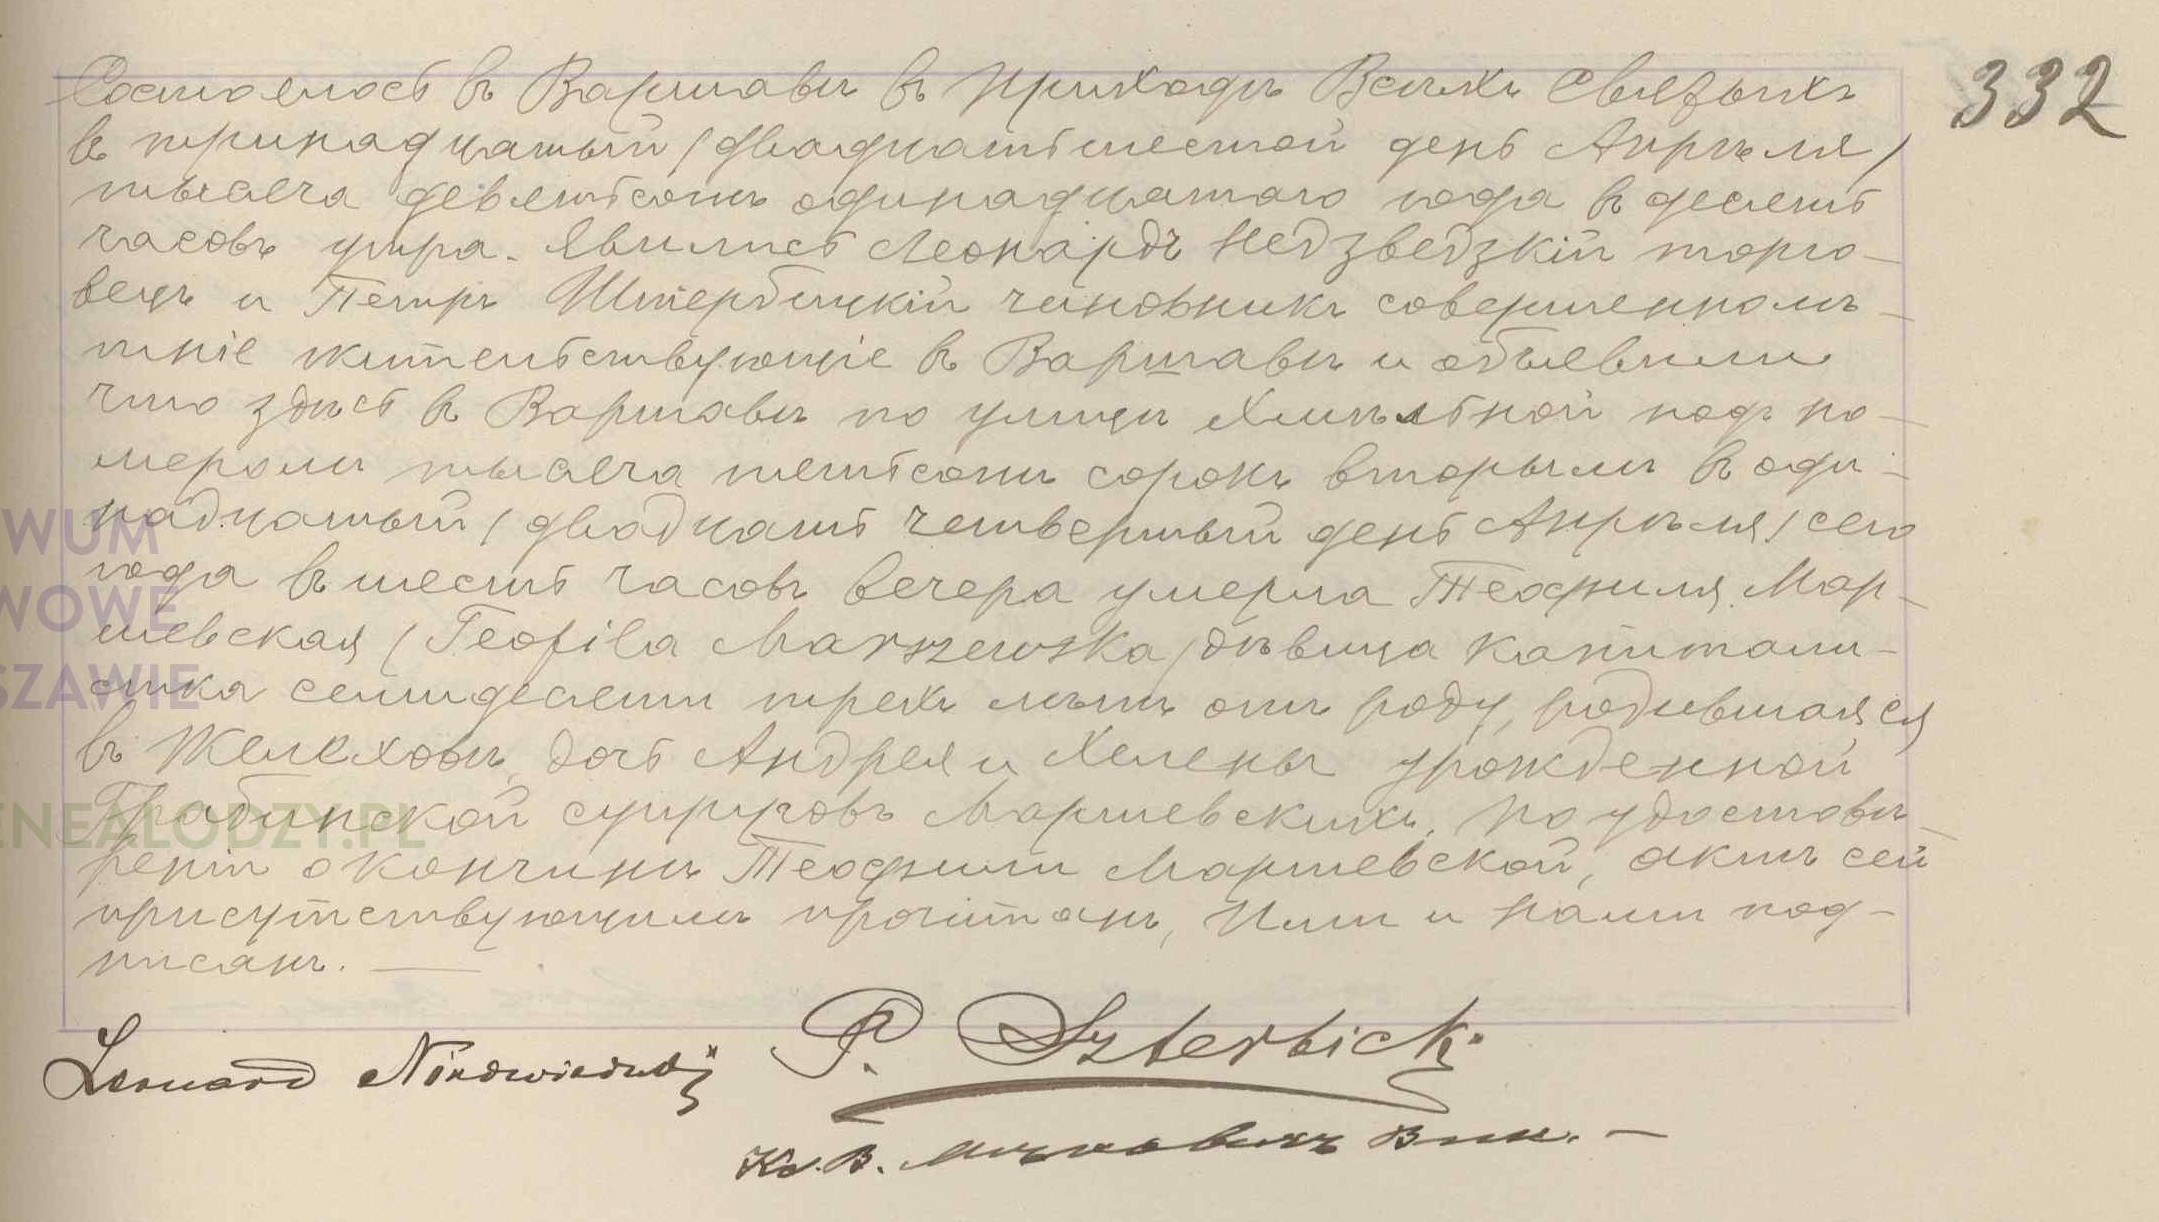 332
Состоялось въ Варшавѣ въ Приходѣ Всѣхъ Святыхъ
въ тринадцатый /двадцать шестой день Апрѣля/
тысяча девятьсотъ одинадцатаго года въ десять
часовъ утра. Явились Леонардъ Недзведзкій торго-
вецъ и Петръ Штербицкій чиновникъ совершеннолѣ-
тніе жительствующіе въ Варшавѣ и объявили
что здѣсь въ Варшавѣ по улицѣ Хмѣльной подъ но-
меромъ тысяча пятьсотъ сорокъ вторымъ въ оди-
надцатый /двадцать четвертый день Апрѣля/ сего
года въ шесть часовъ вечера умерла Теофиля Мар-
шевская /Teofila Marszewska/ дѣвица капитали-
стка семидесяти трехъ лѣтъ отъ роду, родившаяся
въ Желехове, дочь Андрея и Хелены урожденной
Грабинской супруговъ Маршевскихъ. По удостовѣ-
реніи о кончинѣ Теофили Маршевской, актъ сей
присутствующимъ прочитанъ, Ими и Нами под-
писанъ. —
Leonard Niedźwiedzki
P. Szterbicki
Кс. В. Вик. —
WUM
WOWE
SZAWIE
ENEALODZY.PL